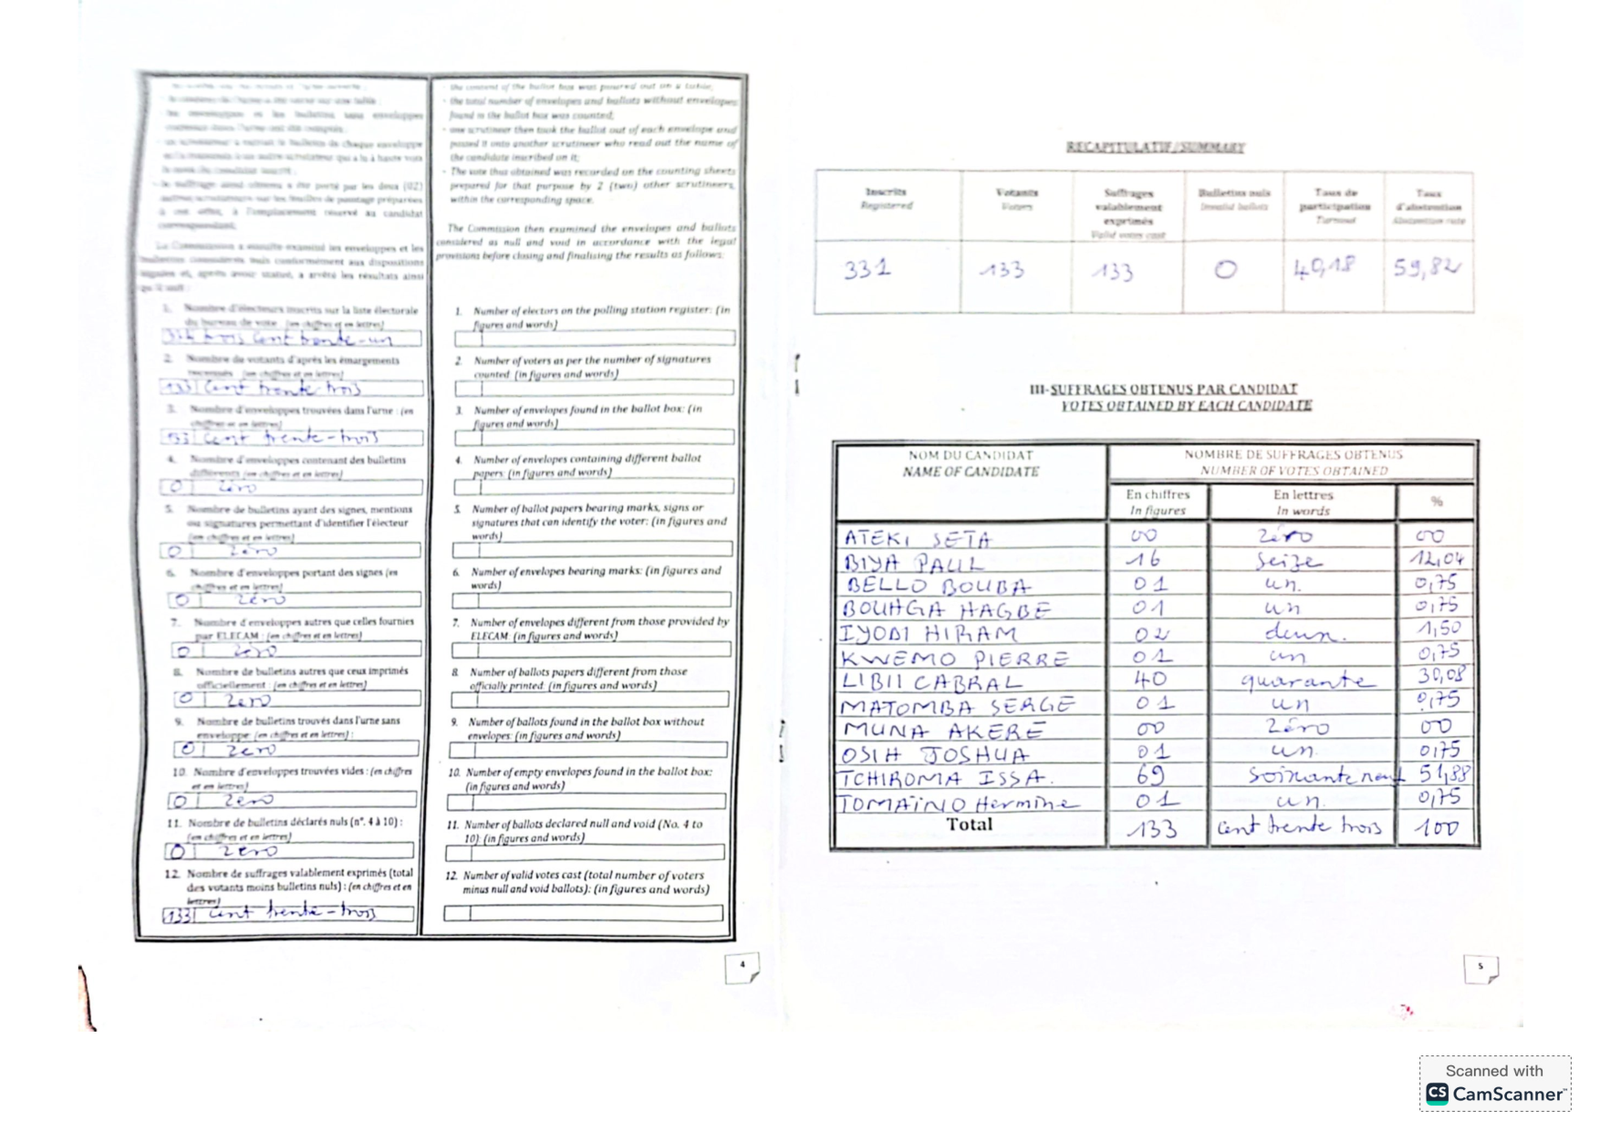 - the content of the ballot box was poured out on a table;
- the total number of envelopes and ballots without envelopes
found in the ballot box was counted;
- one scrutineer then took the ballot out of each envelope and
passed it onto another scrutineer who read out the name of
the candidate inscribed on it;
- The vote thus obtained was recorded on the counting sheets
prepared for that purpose by 2 (two) other scrutineers,
within the corresponding space.
The Commission then examined the envelopes and ballots
considered as null and void in accordance with the legal
provisions before closing and finalising the results as follows:
La Commission a ensuite examiné les enveloppes et les
1. Nombre d'électeurs inscrits sur la liste électorale
du bureau de vote (en chiffres et en lettres)
trois cent trente-un
2. Nombre de votants d'après les émargements
(en chiffres et en lettres)
133 Cent trente trois
3. Nombre d'enveloppes trouvées dans l'urne : (en
chiffres et en lettres)
133 Cent trente-trois
4. Nombre d'enveloppes contenant des bulletins
différents (en chiffres et en lettres)
0 zéro
5. Nombre de bulletins ayant des signes, mentions
ou signatures permettant d'identifier l'électeur
(en chiffres et en lettres)
0 zéro
6. Nombre d'enveloppes portant des signes (en
chiffres et en lettres)
0 zéro
7. Nombre d'enveloppes autres que celles fournies
par ELECAM : (en chiffres et en lettres)
0 zéro
8. Nombre de bulletins autres que ceux imprimés
officiellement : (en chiffres et en lettres)
0 zero
9. Nombre de bulletins trouvés dans l'urne sans
enveloppe (en chiffres et en lettres) :
0 zero
10. Nombre d'enveloppes trouvées vides : (en chiffres
et en lettres)
0 zero
11. Nombre de bulletins déclarés nuls (n°. 4 à 10) :
(en chiffres et en lettres)
0 zero
12. Nombre de suffrages valablement exprimés (total
des votants moins bulletins nuls) : (en chiffres et en
lettres)
133 Cent trente-trois
1. Number of electors on the polling station register: (in
figures and words)
2. Number of voters as per the number of signatures
counted: (in figures and words)
3. Number of envelopes found in the ballot box: (in
figures and words)
4. Number of envelopes containing different ballot
papers: (in figures and words)
5. Number of ballot papers bearing marks, signs or
signatures that can identify the voter: (in figures and
words)
6. Number of envelopes bearing marks: (in figures and
words)
7. Number of envelopes different from those provided by
ELECAM: (in figures and words)
8. Number of ballots papers different from those
officially printed: (in figures and words)
9. Number of ballots found in the ballot box without
envelopes: (in figures and words)
10. Number of empty envelopes found in the ballot box:
(in figures and words)
11. Number of ballots declared null and void (No. 4 to
10): (in figures and words)
12. Number of valid votes cast (total number of voters
minus null and void ballots): (in figures and words)
4
RECAPITULATIF/SUMMARY
Inscrits Registered | Votants Voters | Suffrages valablement exprimés Valid votes cast | Bulletins nuls Invalid ballots | Taux de participation Turnout | Taux d'abstention Abstention rate
331 133 133 0 40,18 59,82
III-SUFFRAGES OBTENUS PAR CANDIDAT
VOTES OBTAINED BY EACH CANDIDATE
NOM DU CANDIDAT NOMBRE DE SUFFRAGES OBTENUS
NAME OF CANDIDATE NUMBER OF VOTES OBTAINED
En chiffres En lettres %
In figures In words
ATEKI SETA 00 zéro 00
BIYA PAUL 16 seize 12,04
BELLO BOUBA 01 un. 0,75
BOUHGA HAGBE 01 un 0,75
IYODI HIRAM 02 deux. 1,50
KWEMO PIERRE 01 un 0,75
LIBII CABRAL 40 quarante 30,08
MATOMBA SERGE 01 un 0,75
MUNA AKERE 00 zéro 00
OSIH JOSHUA 01 un. 0,75
TCHIROMA ISSA. 69 soixante neuf 51,88
TOMAÏNO Hermine 01 un. 0,75
Total 133 Cent trente trois 100
5
Scanned with
CS CamScanner